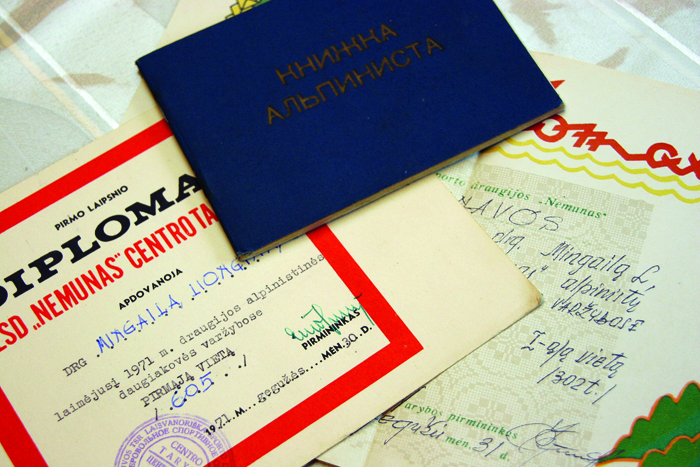 КНИЖКА
АЛЬПИНИСТА
PIRMO LAIPSNIO
DIPLOMA
SD „NEMUNAS“ CENTRO TA
APDOVANOJA
DRG MINGAILĄ
laimėjusį 1971 m. draugijos alpinistinės
daugiakovės varžybose
PIRMĄJĄ VIETĄ
/ 605 . . /
PIRMININKAS
1971 M... gegužės.... MĖN. 30 D.
CENTRO
TARY
porto draugijos „Nemunas“
AVOS
drg. Mingailą L.
alpinistų
varžybose
I-ąją vietą
/302t./
arybos pirmininkas
gegužės mėn. 31 d.